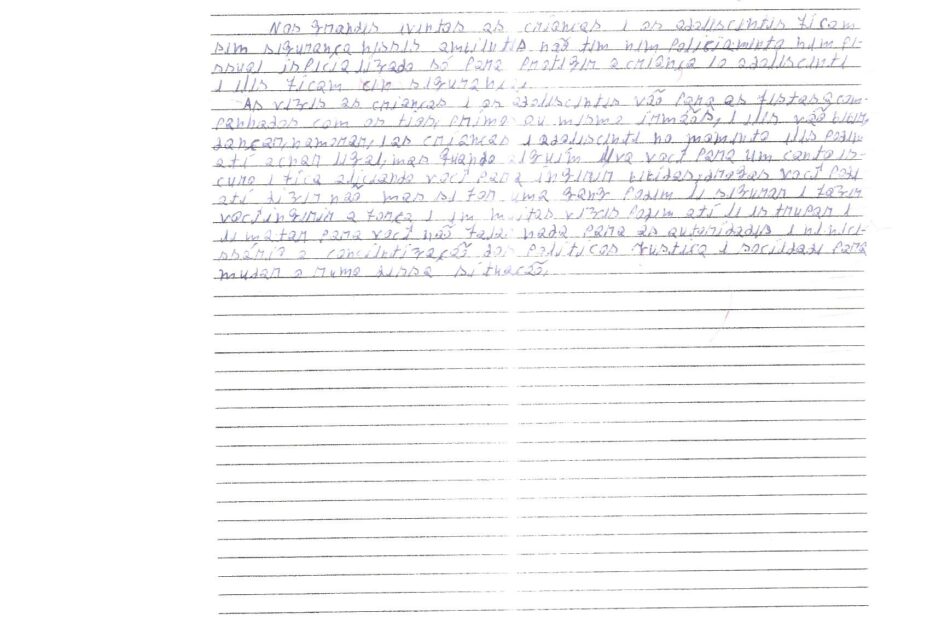 Nos grandes eventos as crianças e os adolescentes ficam
sem segurança nesses ambientes não tem nem policiamento nem pe-
ssoal especializado só para proteger a criança e o adolescente
e eles ficam em
As vezes as crianças e os adolescentes vão para as festas acom-
panhados com os tios, primo ou mesmo irmãos, e eles vão beber,
dançar, namorar, e as crianças e adolescente no momento eles podem
até achar legal, mas quando alguém leva você para um canto es-
curo e fica aliciando você para ingerir bebidas, drogas você pode
até dizer não mas se for uma gang podem le segurar e fazer
você ingerir a força e em muitas vezes podem até le estrupar e
le matar para você não falar nada para as autoridades e nesse-
ssário a concientização dos políticos justiça e sociedade para
mudar o rumo dessa situação.